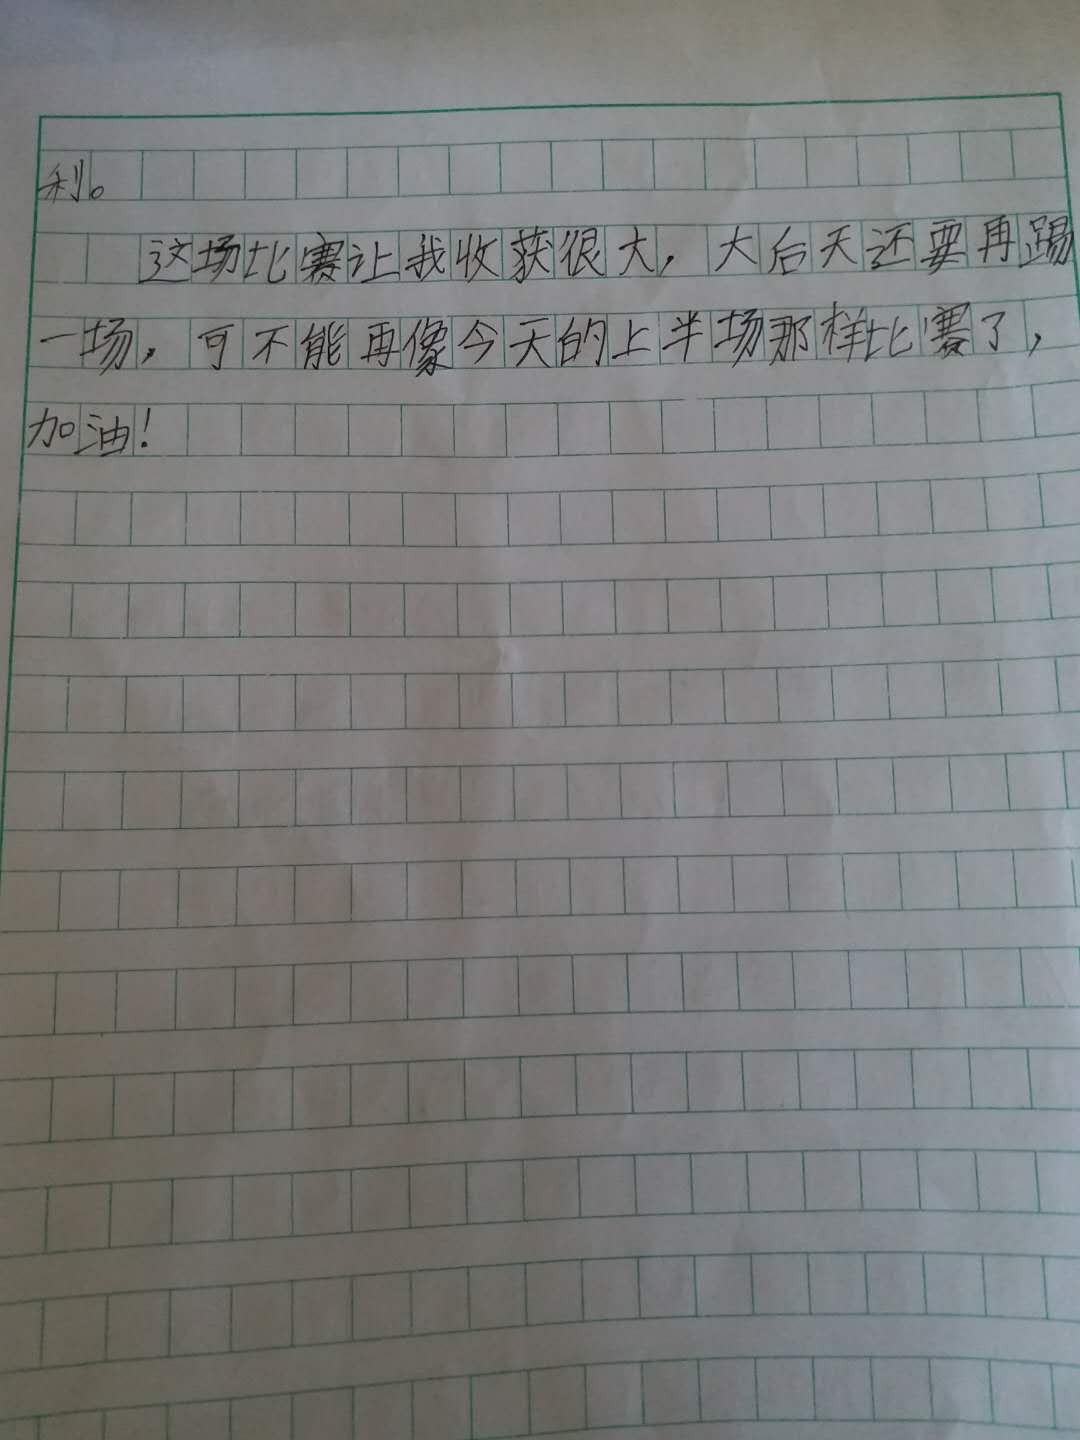 利。
这场比赛让我收获很大，大后天还要再踢
一场，可不能再像今天的上半场那样比赛了，
加油！